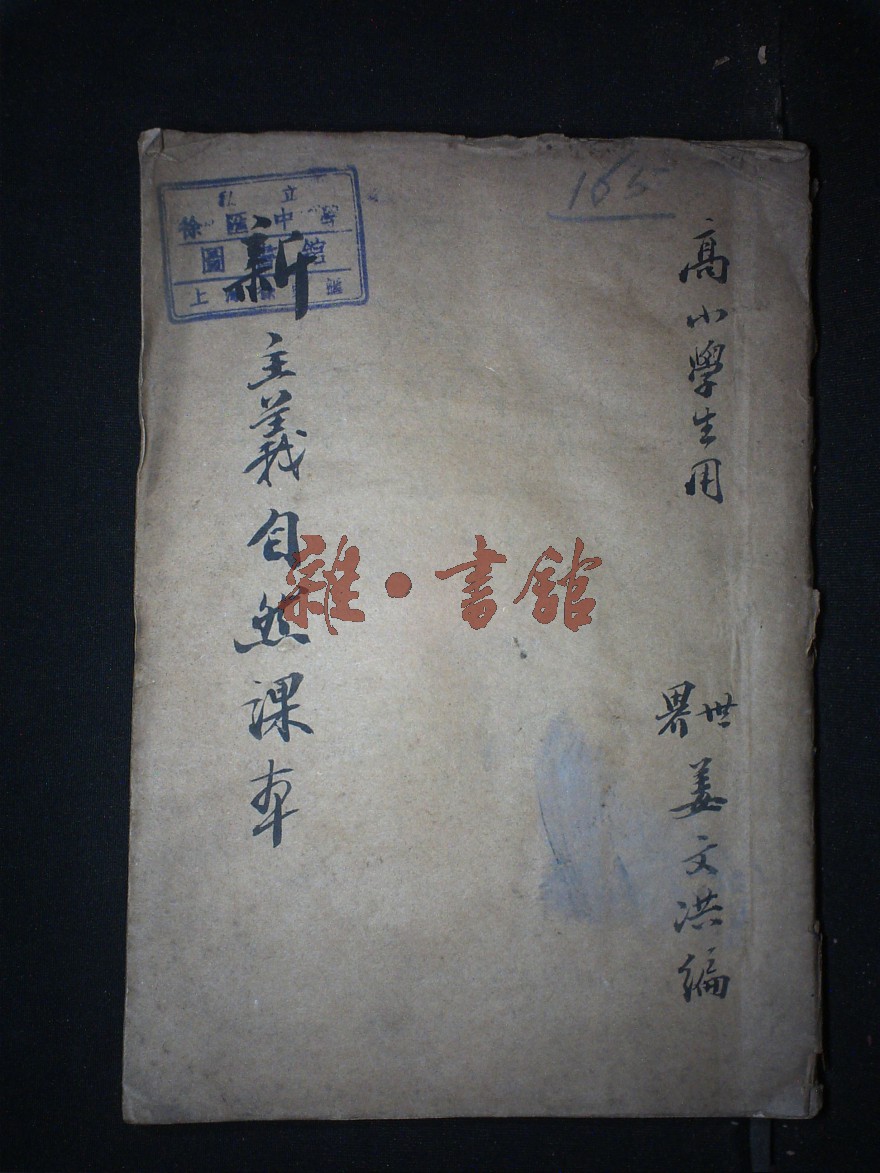 165
高小學生用
世界 姜文洪編
新主義自然課本
立
徐匯中學
圖書館
上海徐匯
雜·書館